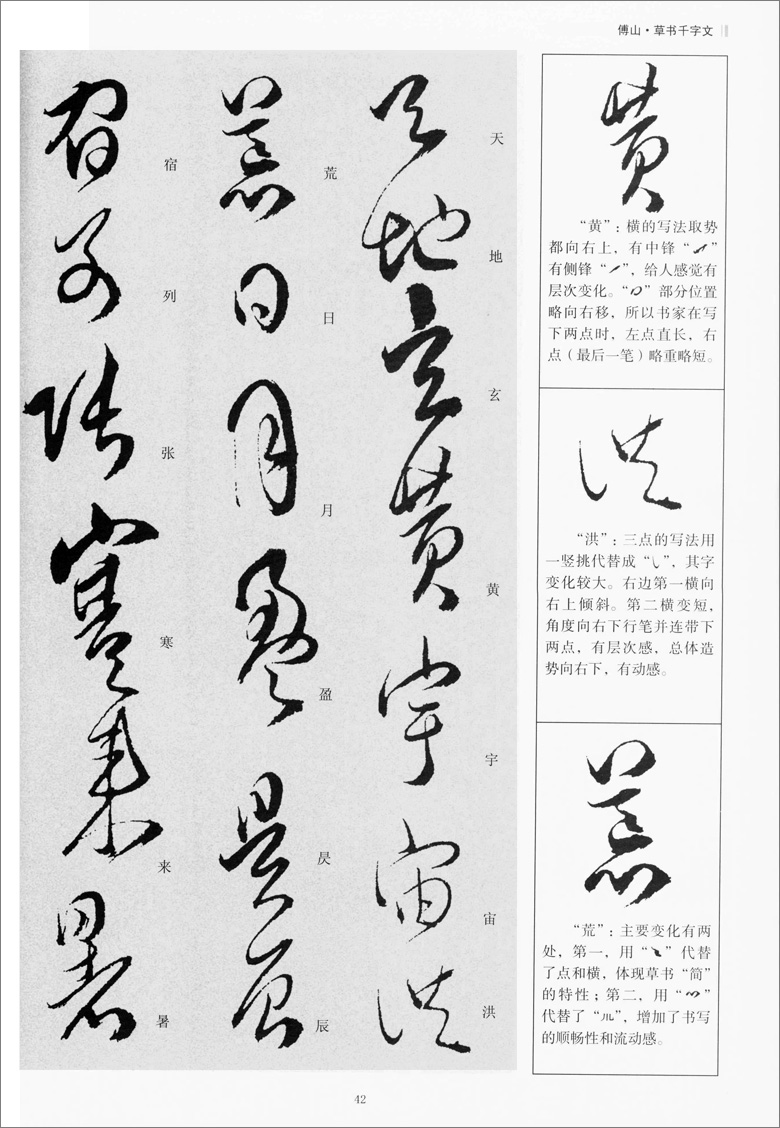 傅山·草书千字文
天地玄黄宇宙洪
荒日月盈昃辰
宿列张寒来暑
天
地
玄
黄
宇
宙
洪
荒
日
月
盈
昃
辰
宿
列
张
寒
来
暑
黄
“黄”：横的写法取势
都向右上，有中锋“”
有侧锋“”，给人感觉有
层次变化。“”部分位置
略向右移，所以书家在写
下两点时，左点直长，右
点（最后一笔）略重略短。
洪
“洪”：三点的写法用
一竖挑代替成“”，其字
变化较大。右边第一横向
右上倾斜。第二横变短，
角度向右下行笔并连带下
两点，有层次感，总体造
势向右下，有动感。
荒
“荒”：主要变化有两
处，第一，用“”代替
了点和横，体现草书“简”
的特性；第二，用“”
代替了“”，增加了书写
的顺畅性和流动感。
42